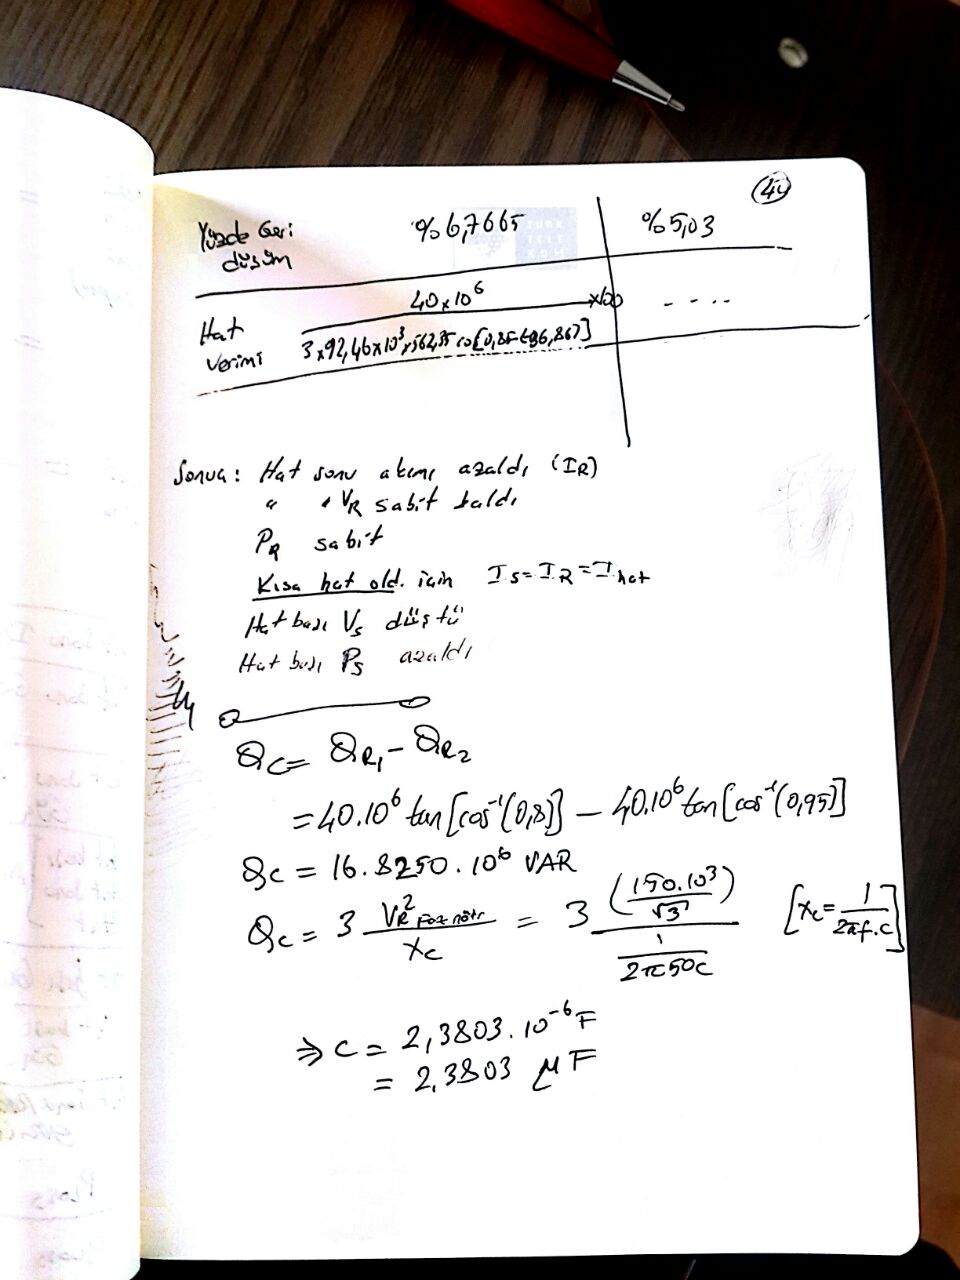 44
Yüzde Geri düşüm %6,7665 %5,03
Hat verimi 40x10⁶ / 3x92,46x10³x562,35 co[0,85-(-36,867] x100 - - - -
Sonuç: Hat sonu akımı azaldı (IR)
" " VR sabit kaldı
PR sabit
Kısa hat old. için IS=IR=Ihat
Hat başı VS düştü
Hat başı PS azaldı
QC= QR1-QR2
=40.10⁶ tan[cos⁻¹(0,8)] - 40.10⁶ tan[cos⁻¹(0,95)]
QC = 16.8250.10⁶ VAR
QC = 3 VR² Faz nötr / XC = 3 (150.10³/√3) / (1/2π50C) [XC=1/2πf.C]
⇒ C = 2,3803.10⁻⁶ F
= 2,3803 μF